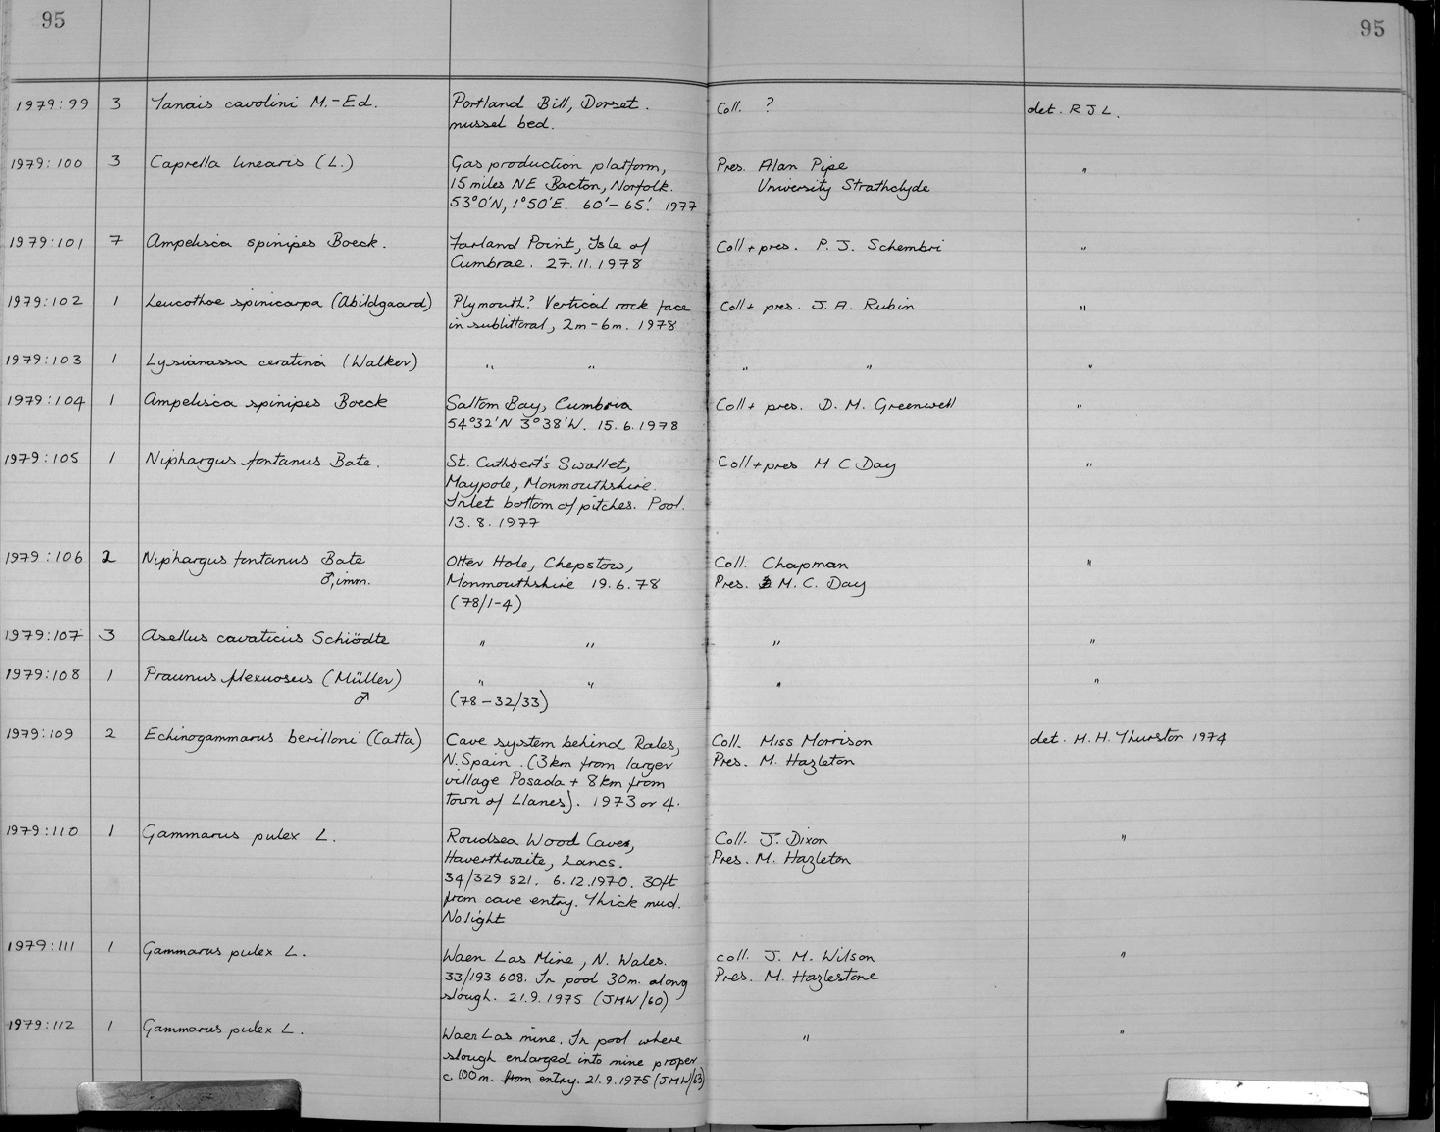 95
95
1979:99 3 Tanais cavolini M.-Ed. Portland Bill, Dorset. Coll. ? det. R J L.
mussel bed.
1979:100 3 Caprella linearis (L.) Gas production platform, Pres. Alan Pipe "
15 miles NE Bacton, Norfolk. University Strathclyde
53°0'N, 1°50'E. 60'-65'. 1977
1979:101 7 Ampelisca spinipes Boeck. Farland Point, Isle of Coll + pres. P. J. Schembri "
Cumbrae. 27.11.1978
1979:102 1 Leucothoe spinicarpa (Abildgaard) Plymouth? Vertical rock face Coll + pres. J. A. Rubin "
in sublittoral, 2m-6m. 1978
1979:103 1 Lysianassa ceratina (Walker) " " " " "
1979:104 1 Ampelisca spinipes Boeck Saltom Bay, Cumbria Coll + pres. D. M. Greenwell "
54°32'N 3°38'W. 15.6.1978
1979:105 1 Niphargus fontanus Bate. St. Cuthbert's Swallet, Coll + pres M C Day "
Maypole, Monmouthshire.
Inlet bottom of pitches. Pool.
13.8.1977
1979:106 2 Niphargus fontanus Bate Otter Hole, Chepstow, Coll. Chapman "
♂, imm. Monmouthshire 19.6.78 Pres. M. C. Day
(78/1-4)
1979:107 3 Asellus cavaticus Schiödte " " " "
1979:108 1 Praunus flexuosus (Müller) " " " "
♂ (78-32/33)
1979:109 2 Echinogammarus berilloni (Catta) Cave system behind Rales, Coll. Miss Morrison det. M. H. Thurston 1974
N. Spain. (3km from larger Pres. M. Hazleton
village Posada + 8km from
town of Llanes). 1973 or 4.
1979:110 1 Gammarus pulex L. Roudsea Wood Caves, Coll. J. Dixon "
Haverthwaite, Lancs. Pres. M. Hazleton
34/329 821. 6.12.1970. 30ft
from cave entry. Thick mud.
No light
1979:111 1 Gammarus pulex L. Waen Las Mine, N. Wales. coll. J. M. Wilson "
33/193 608. In pool 30m. along Pres. M. Hazlestone
slough. 21.9.1975 (JMW/60)
1979:112 1 Gammarus pulex L. Waen Las mine. In pool where " "
slough enlarged into mine proper
c. 100m. from entry. 21.9.1975 (JMW/63)